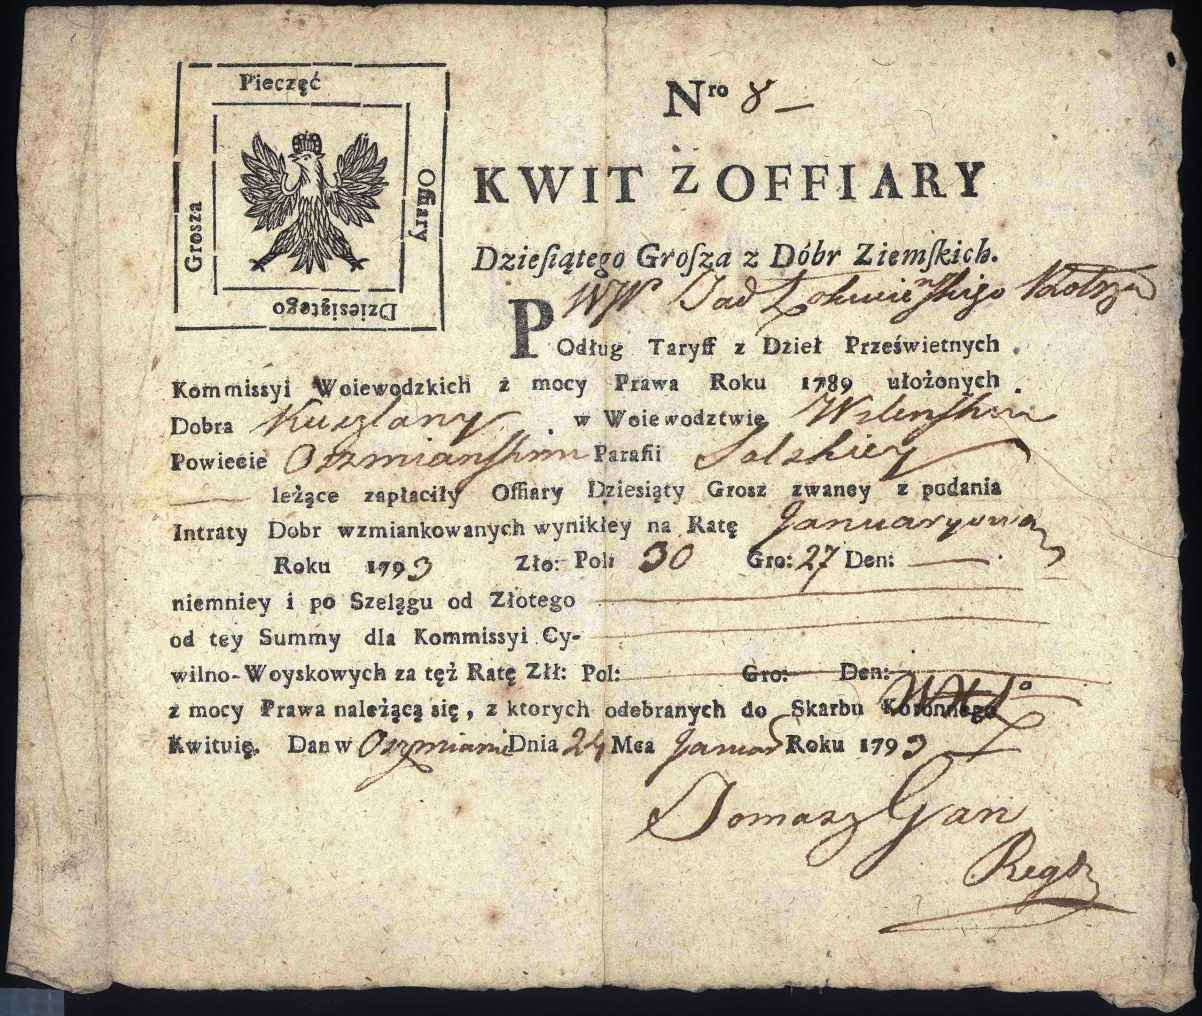 Pieczęć
Offiary
Dziesiątego
Grosza
Nro 8 —
KWIT Z OFFIARY
Dzieſiątego Groſza z Dóbr Ziemſkich.
WW Tad
POdług Taryff z Dzieł Prześwietnych
Kommissyi Woiewodzkich z mocy Prawa Roku 1789 ułożonych
Dobra Kuczlany w Woiewodztwie Wilenſkim
Powiecie Oszmianſkim Parafii Solskiey
— leżące zapłaciły Offiary Dziesiąty Grosz zwaney z podania
Intraty Dobr wzmiankowanych wynikłey na Ratę Januaryową
Roku 1793 Zło: Pol: 30 Gro: 27 Den: —
niemniey i po Szelągu od Złotego —
od tey Summy dla Kommissyi Cy- —
wilno-Woyskowych za też Ratę Złł: Pol: — Gro: — Den: —
z mocy Prawa należącą się, z ktorych odebranych do Skarbu Koronnego
Kwituię. Dan w Oszmianie Dnia 24 Mca Januar Roku 1793
Tomasz Gan